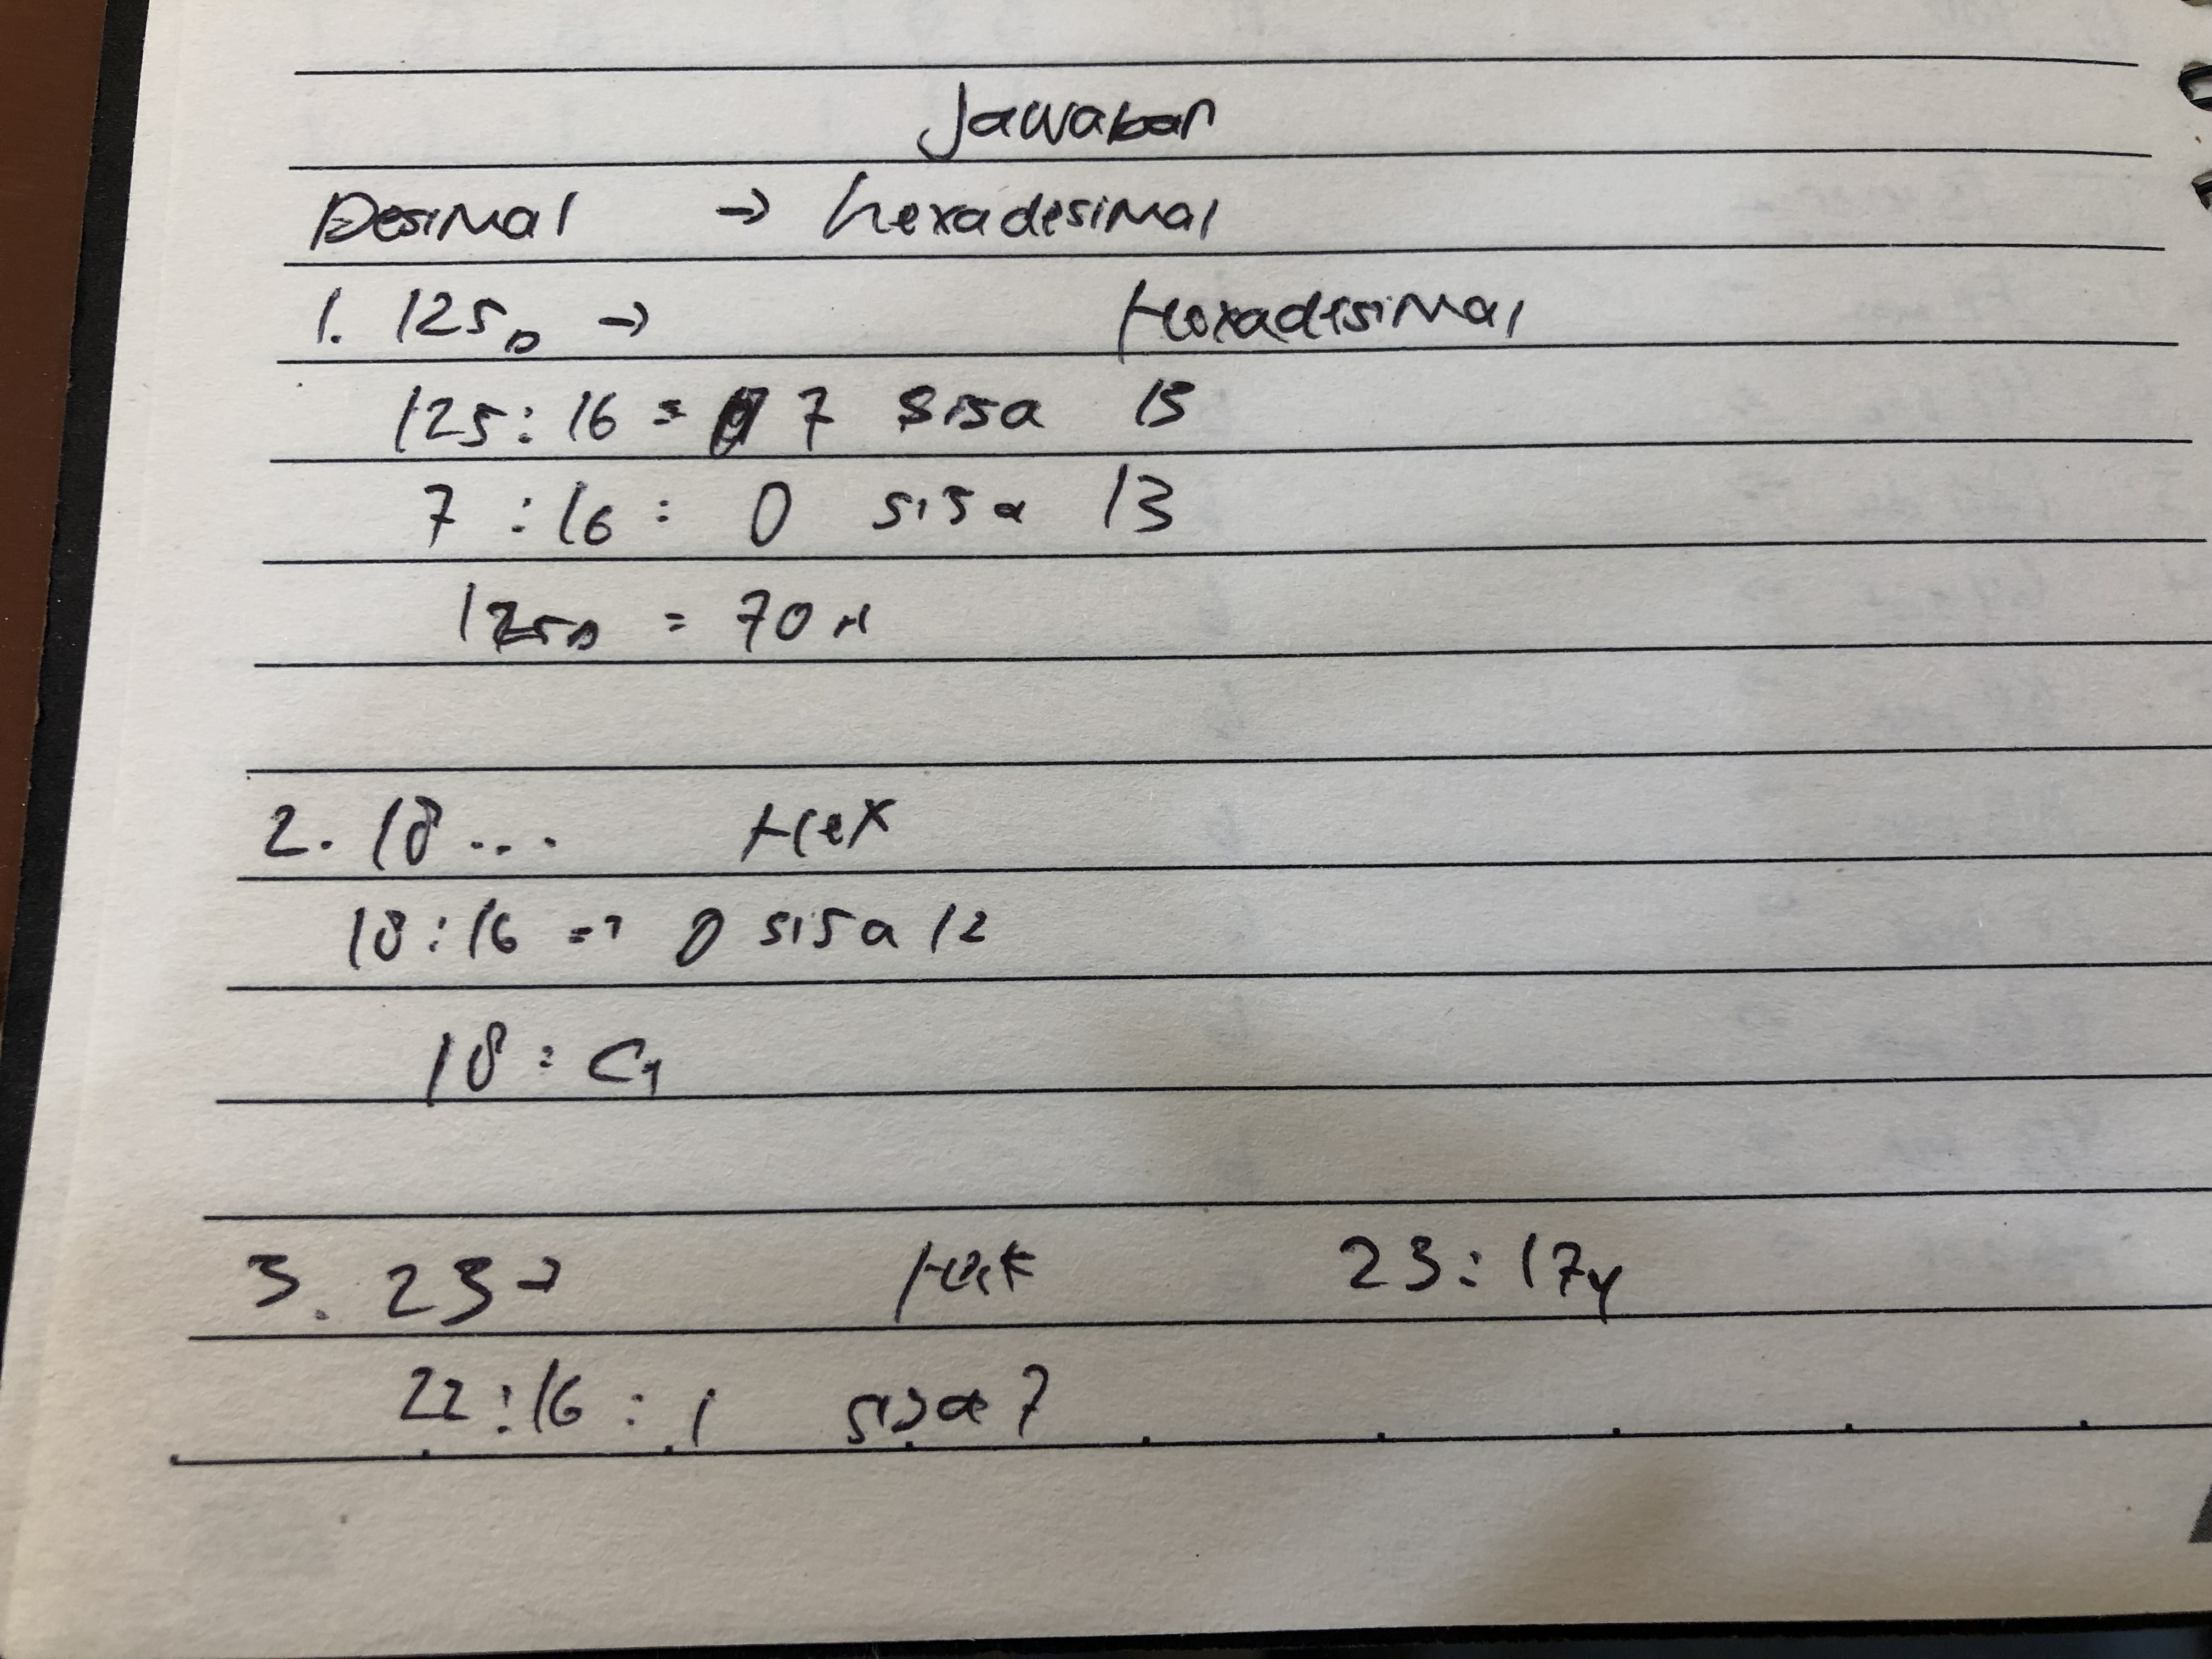 Jawaban
Desimal → hexadesimal
1. 125₀ → Hexadesimal
125 : 16 = 7 sisa 15
7 : 16 : 0 sisa 13
125₀ = 70H
2. 18 ... Hex
18 : 16 = 0 sisa 12
18 : CH
3. 23 → 23 : 17H
22 : 16 : 1 sisa 7